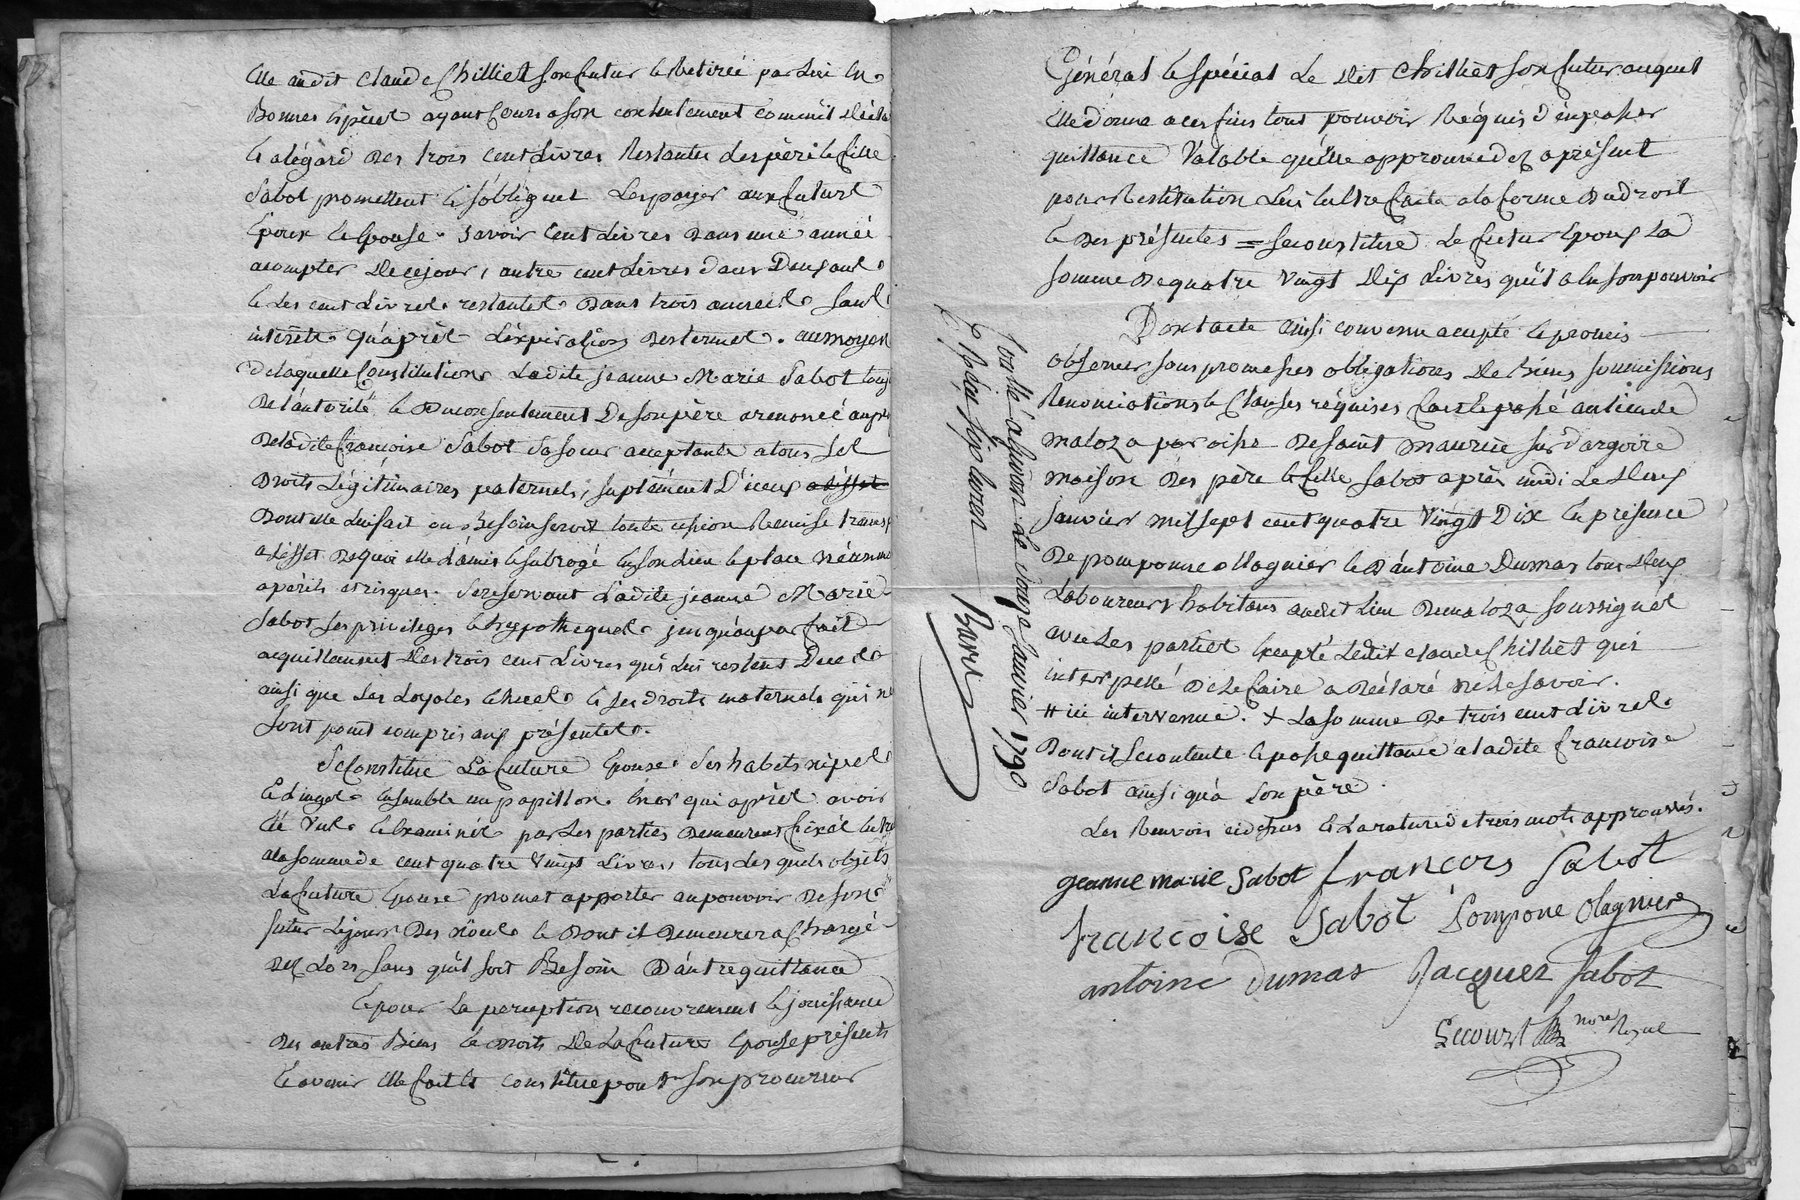 Elle audit claude Chilliet son futur et Retirée par Lui En
Bonnes Espèces ayant Cours a son contentement comm'il déclare
Et alégard des trois Cent Livres Restantes Les père et fille
Sabot promettent Et sobligent Les payer aux futurs
Epoux et Epouse. Savoir Cent Livres dans une année
acompter de cejour, autre cent Livres dans Deux ans
et Les cent Livres restantes dans trois années, sans
interêts qu'après L'éxpiration des termes. aumoyen
delaquelle Constitution Ladite jeanne Marie Sabot
De l'autorité et Du consentement De son père a renoncé au profit
Deladite francoise Sabot sa soeur acceptante a tous Ses
Droits Légitimaires paternels, suplément D'iceux
Dont elle Lui fait au Besoin toute cession Remise
a L'éffet de quoi elle L'a mis et subrogé En son Lieu et place
apérils et risques. Seréservant Ladite jeanne Marie
Sabot Ses privileges et hypotheques jusqu'au parfait
acquittement Des trois cent Livres qui Lui restent Dues
ainsi que Ses Loyales et Ses droits maternels qui ne
sont point compris aux présentes.
Se Constitue La future Epouse. Ses habits nipes
et Linges Ensemble un papillon. qui après avoir
été vus et Examinés par Les parties Demeurent fixés
ala somme de cent quatre Vingt Livres, tous Les quels objets
La future Epouse promet apporter au pouvoir De son
futur Le jour Des nôces et Dont il Demeurera Chargé
Dez Lors Sans qu'il soit Besoin D'autre quittance
Et pour La perception recouvrement Et jouissance
Des autres Biens et droits De La future Epouse présents
Et avenir Elle fait Et constitue pour son procureur
Général et spécial Le dit Chilliet son futur auquel
Elle donne a ces fins tout pouvoir Requis d'en passer
quittance Valable qu'elle approuve dez aprésent
pour Restitution Lui En Etre faite a la forme Du droit
et Des présentes = se constitue Le futur Epoux La
somme De quatre Vingt dix Livres qu'il a En son pouvoir
Dont acte ainsi convenu accepté Et promis
observer sous promesses obligations De Biens soumissions
Renonciations Et Clauses réquises fait Et passé au lieu de
maloza paroisse De saint maurice sur Dargoire
maison Des père et fille Sabot après midi Le Deux
Janvier mil sept cent quatre Vingt Dix En présence
De pomponne ollagnier et D'antoine Dumas tous Deux
Laboureurs habitans audit Lieu De maloza soussignés
avec Les parties Excepté Ledit claude Chilliet qui
interpellé De le faire a Déclaré ne le savoir.
# ici intervenue. + La somme De trois cent Livres
Dont il se contente et passe quittance a ladite francoise
Sabot ainsi qu'a son père.
Les Renvois cidessus Et La rature de trois mots approuvés.
jeanne marie Sabot francois Sabot
francoise Sabot Pompone Olagnier
antoine dumas Jacques Sabot
nore Royal
Conllé a Givors Le douze Janvier 1790